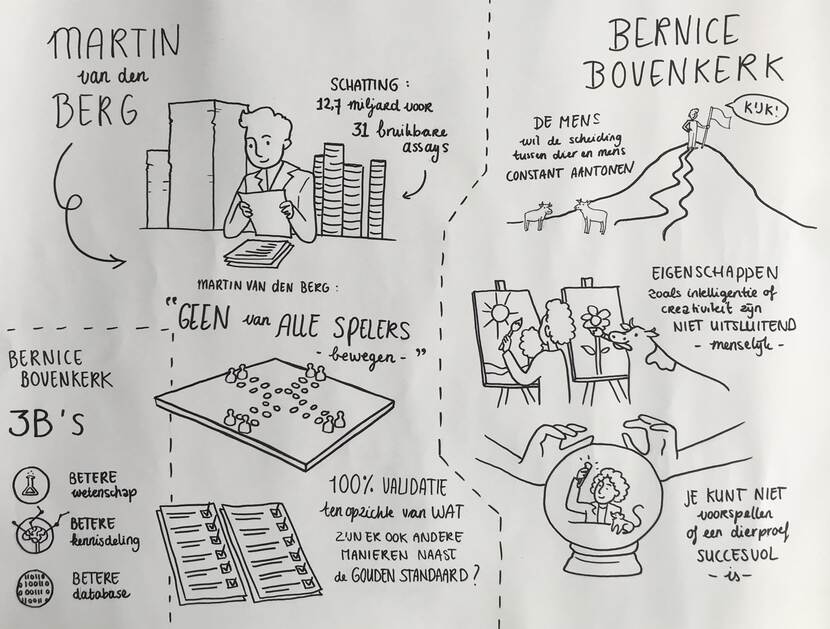 MARTIN
van den
BERG
SCHATTING :
12,7 miljard voor
31 bruikbare
assays
MARTIN VAN DEN BERG :
"GEEN van ALLE SPELERS
- bewegen - "
100% VALIDATIE
ten opzichte van WAT
ZIJN ER OOK ANDERE
MANIEREN NAAST
de GOUDEN STANDAARD?
BERNICE
BOVENKERK
3B's
BETERE
wetenschap
BETERE
kennisdeling
BETERE
database
01101
100110
001110
11001
BERNICE
BOVENKERK
KIJK!
DE MENS
wil de scheiding
tussen dier en mens
CONSTANT AANTONEN
EIGENSCHAPPEN
zoals intelligentie of
creativiteit zijn
NIET UITSLUITEND
- menselijk -
JE KUNT NIET
voorspellen
of een dierproef
SUCCESVOL
- is -